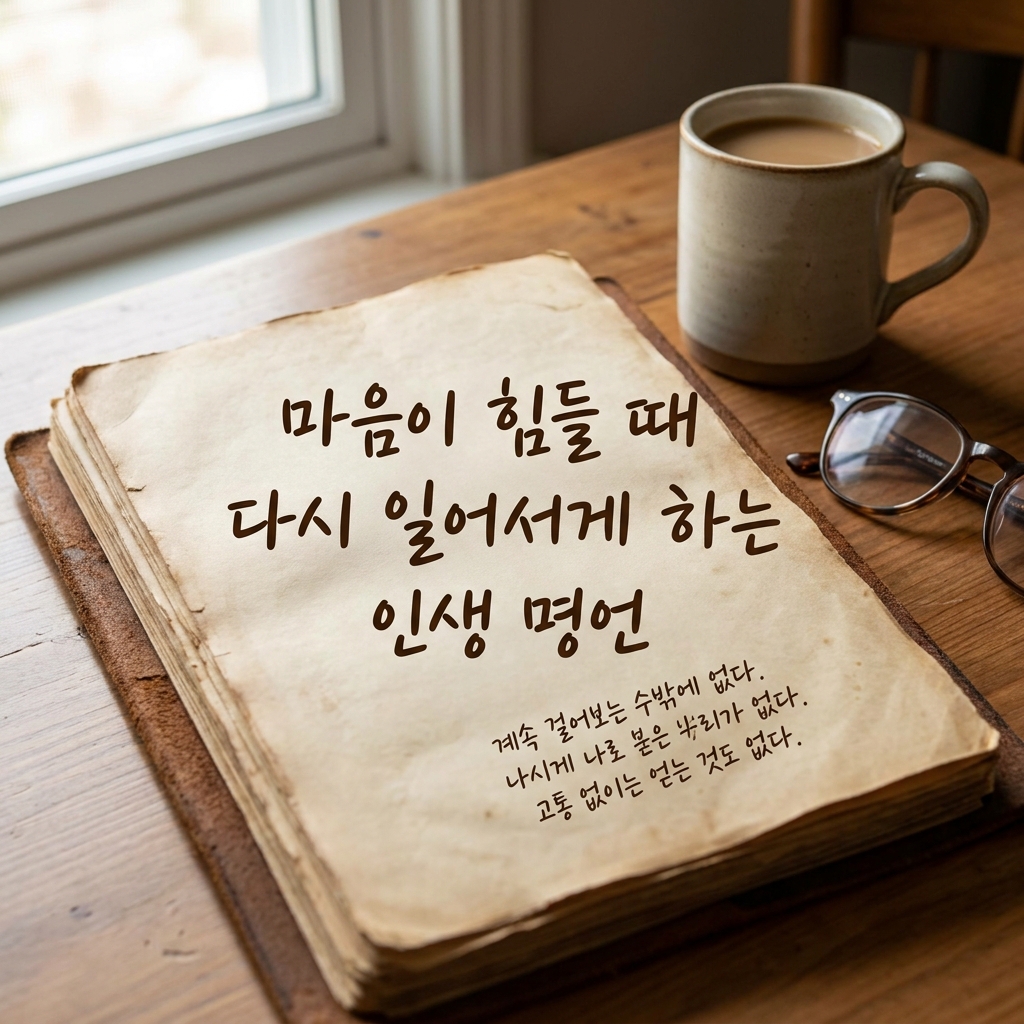 마음이 힘들 때
다시 일어서게 하는
인생 명언
계속 걸어보는 수밖에 없다.
나시게 나로 붇은 가 없다.
고통 없이는 얻는 것도 없다.